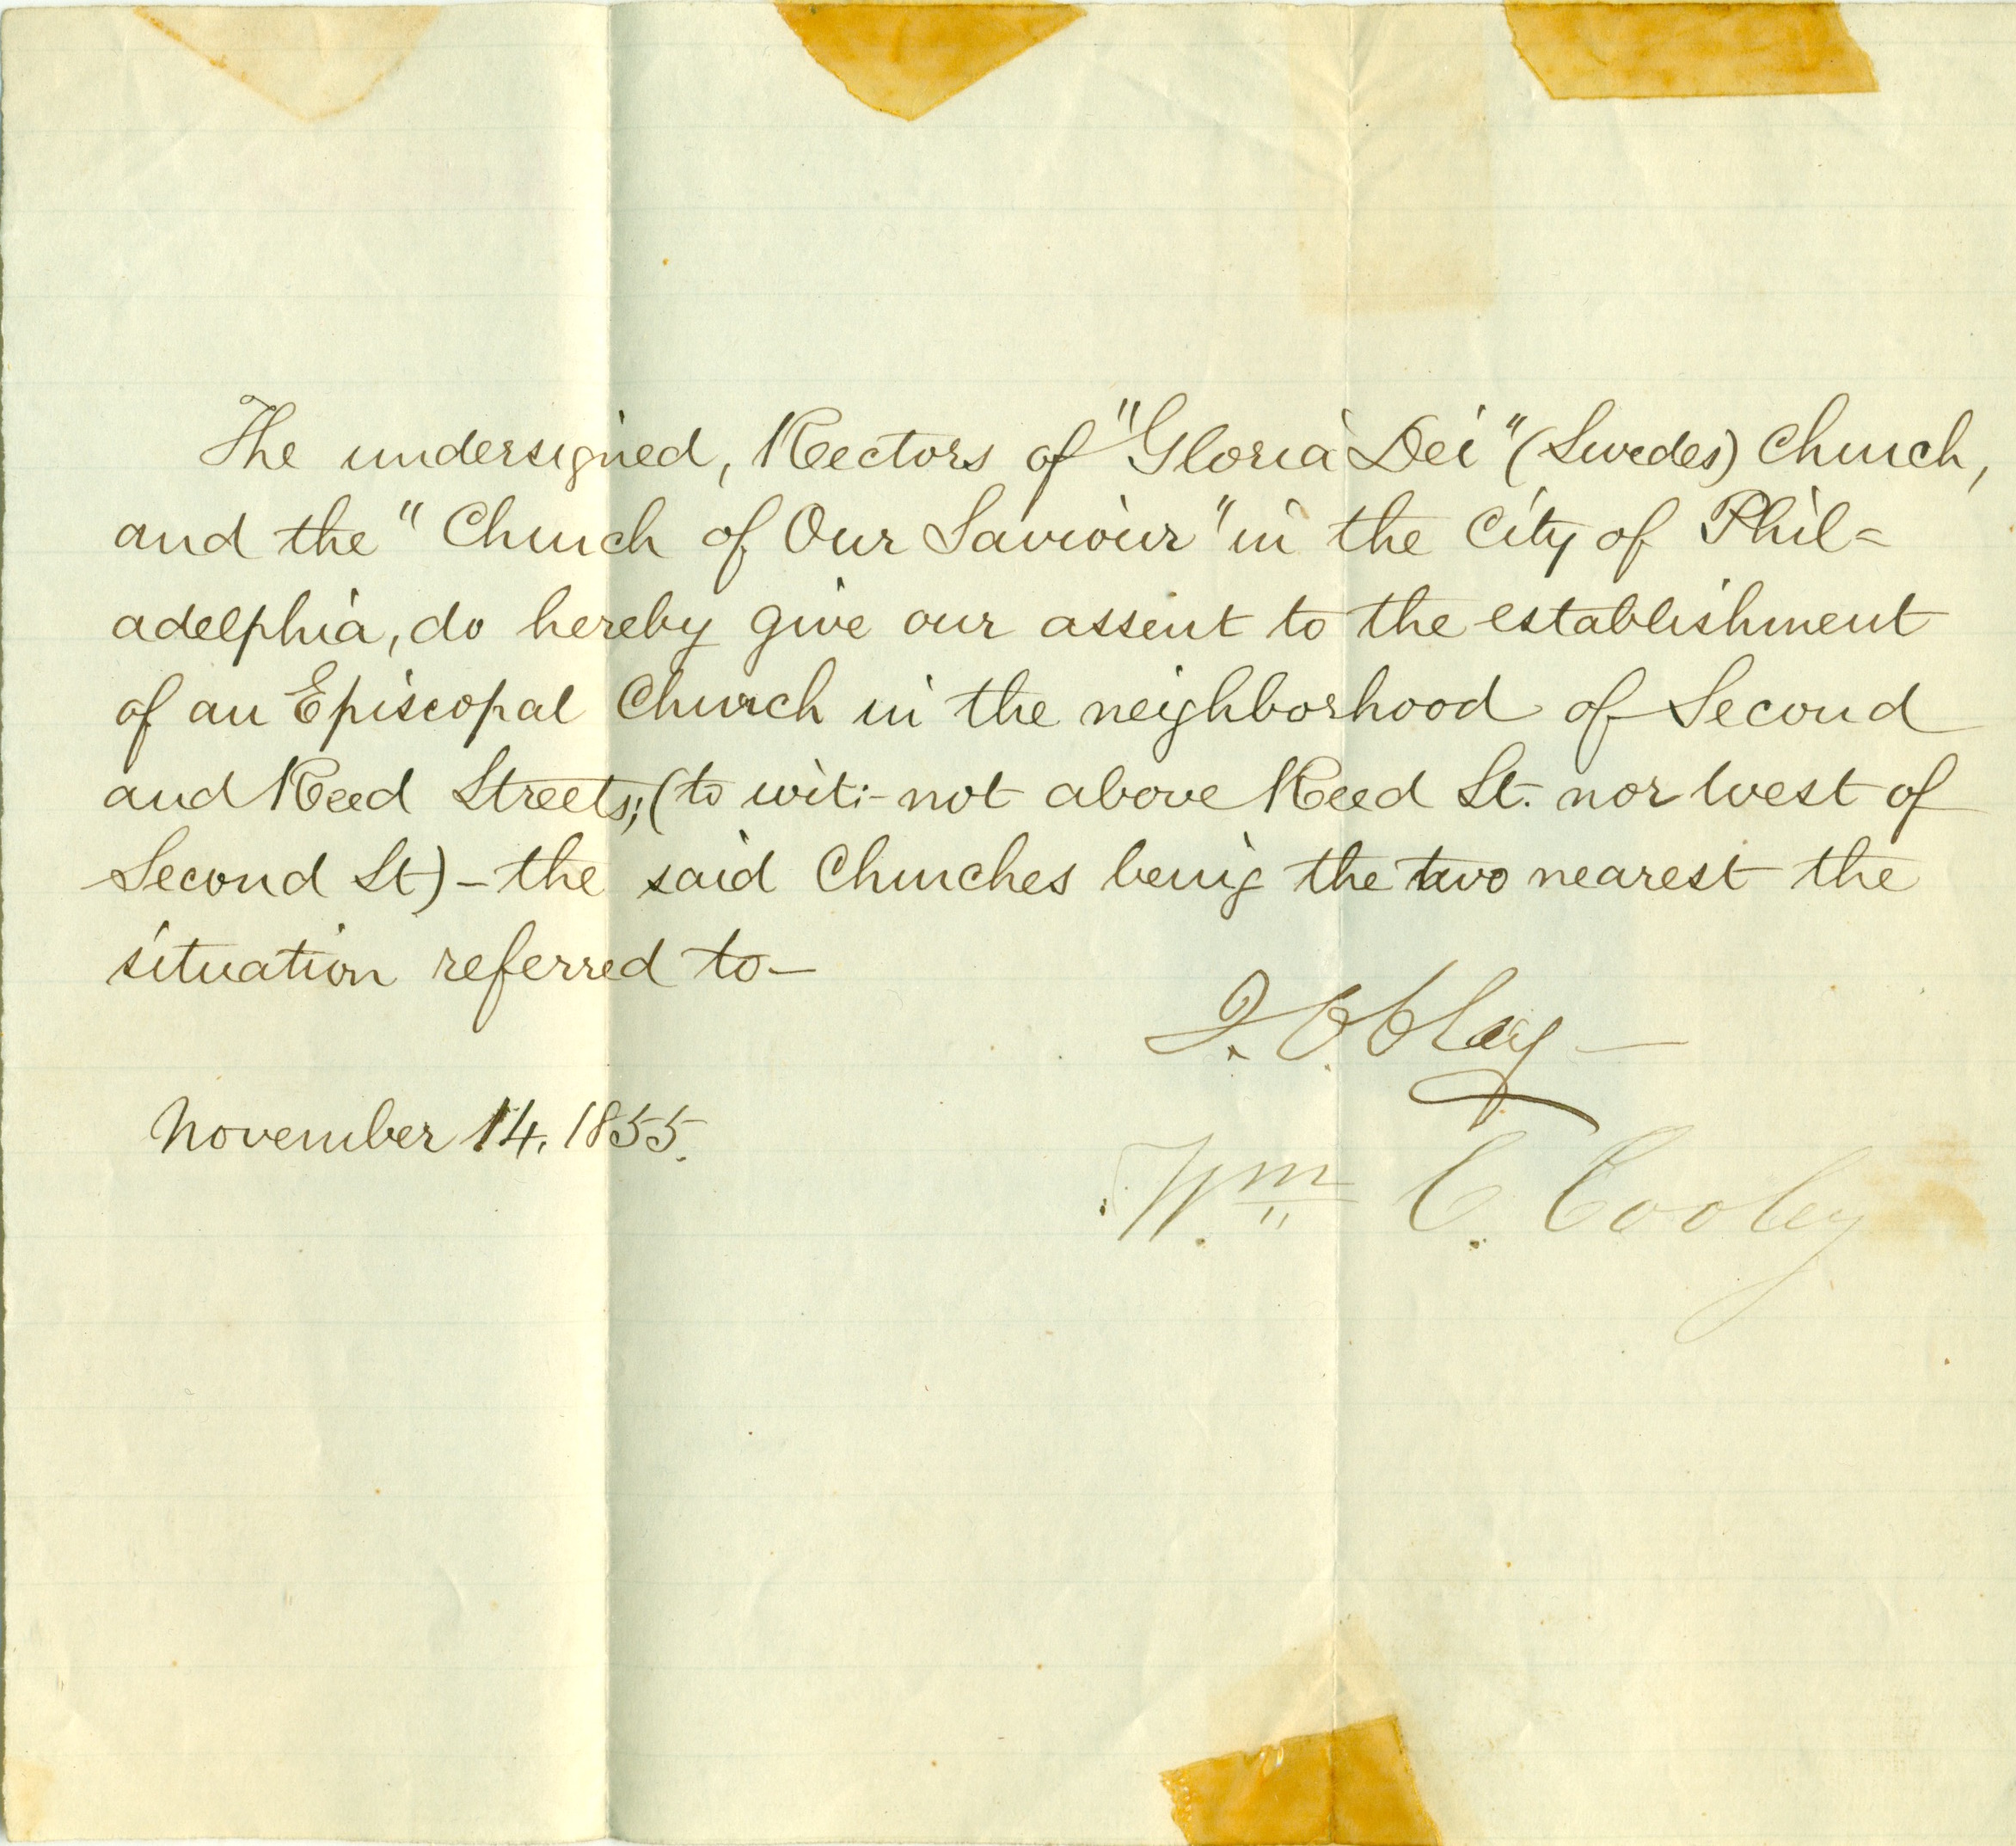 The undersigned, Rectors of "Gloria Dei" (Swedes) Church,
and the "Church of Our Saviour" in the City of Phil=
adelphia, do hereby give our assent to the establishment
of an Episcopal Church in the neighborhood of Second
and Reed Streets; (to wit:- not above Reed St. nor West of
Second St) - the said Churches being the two nearest the
situation referred to—
J. C. Clay —
November 14. 1855.
Wm C. Cooley